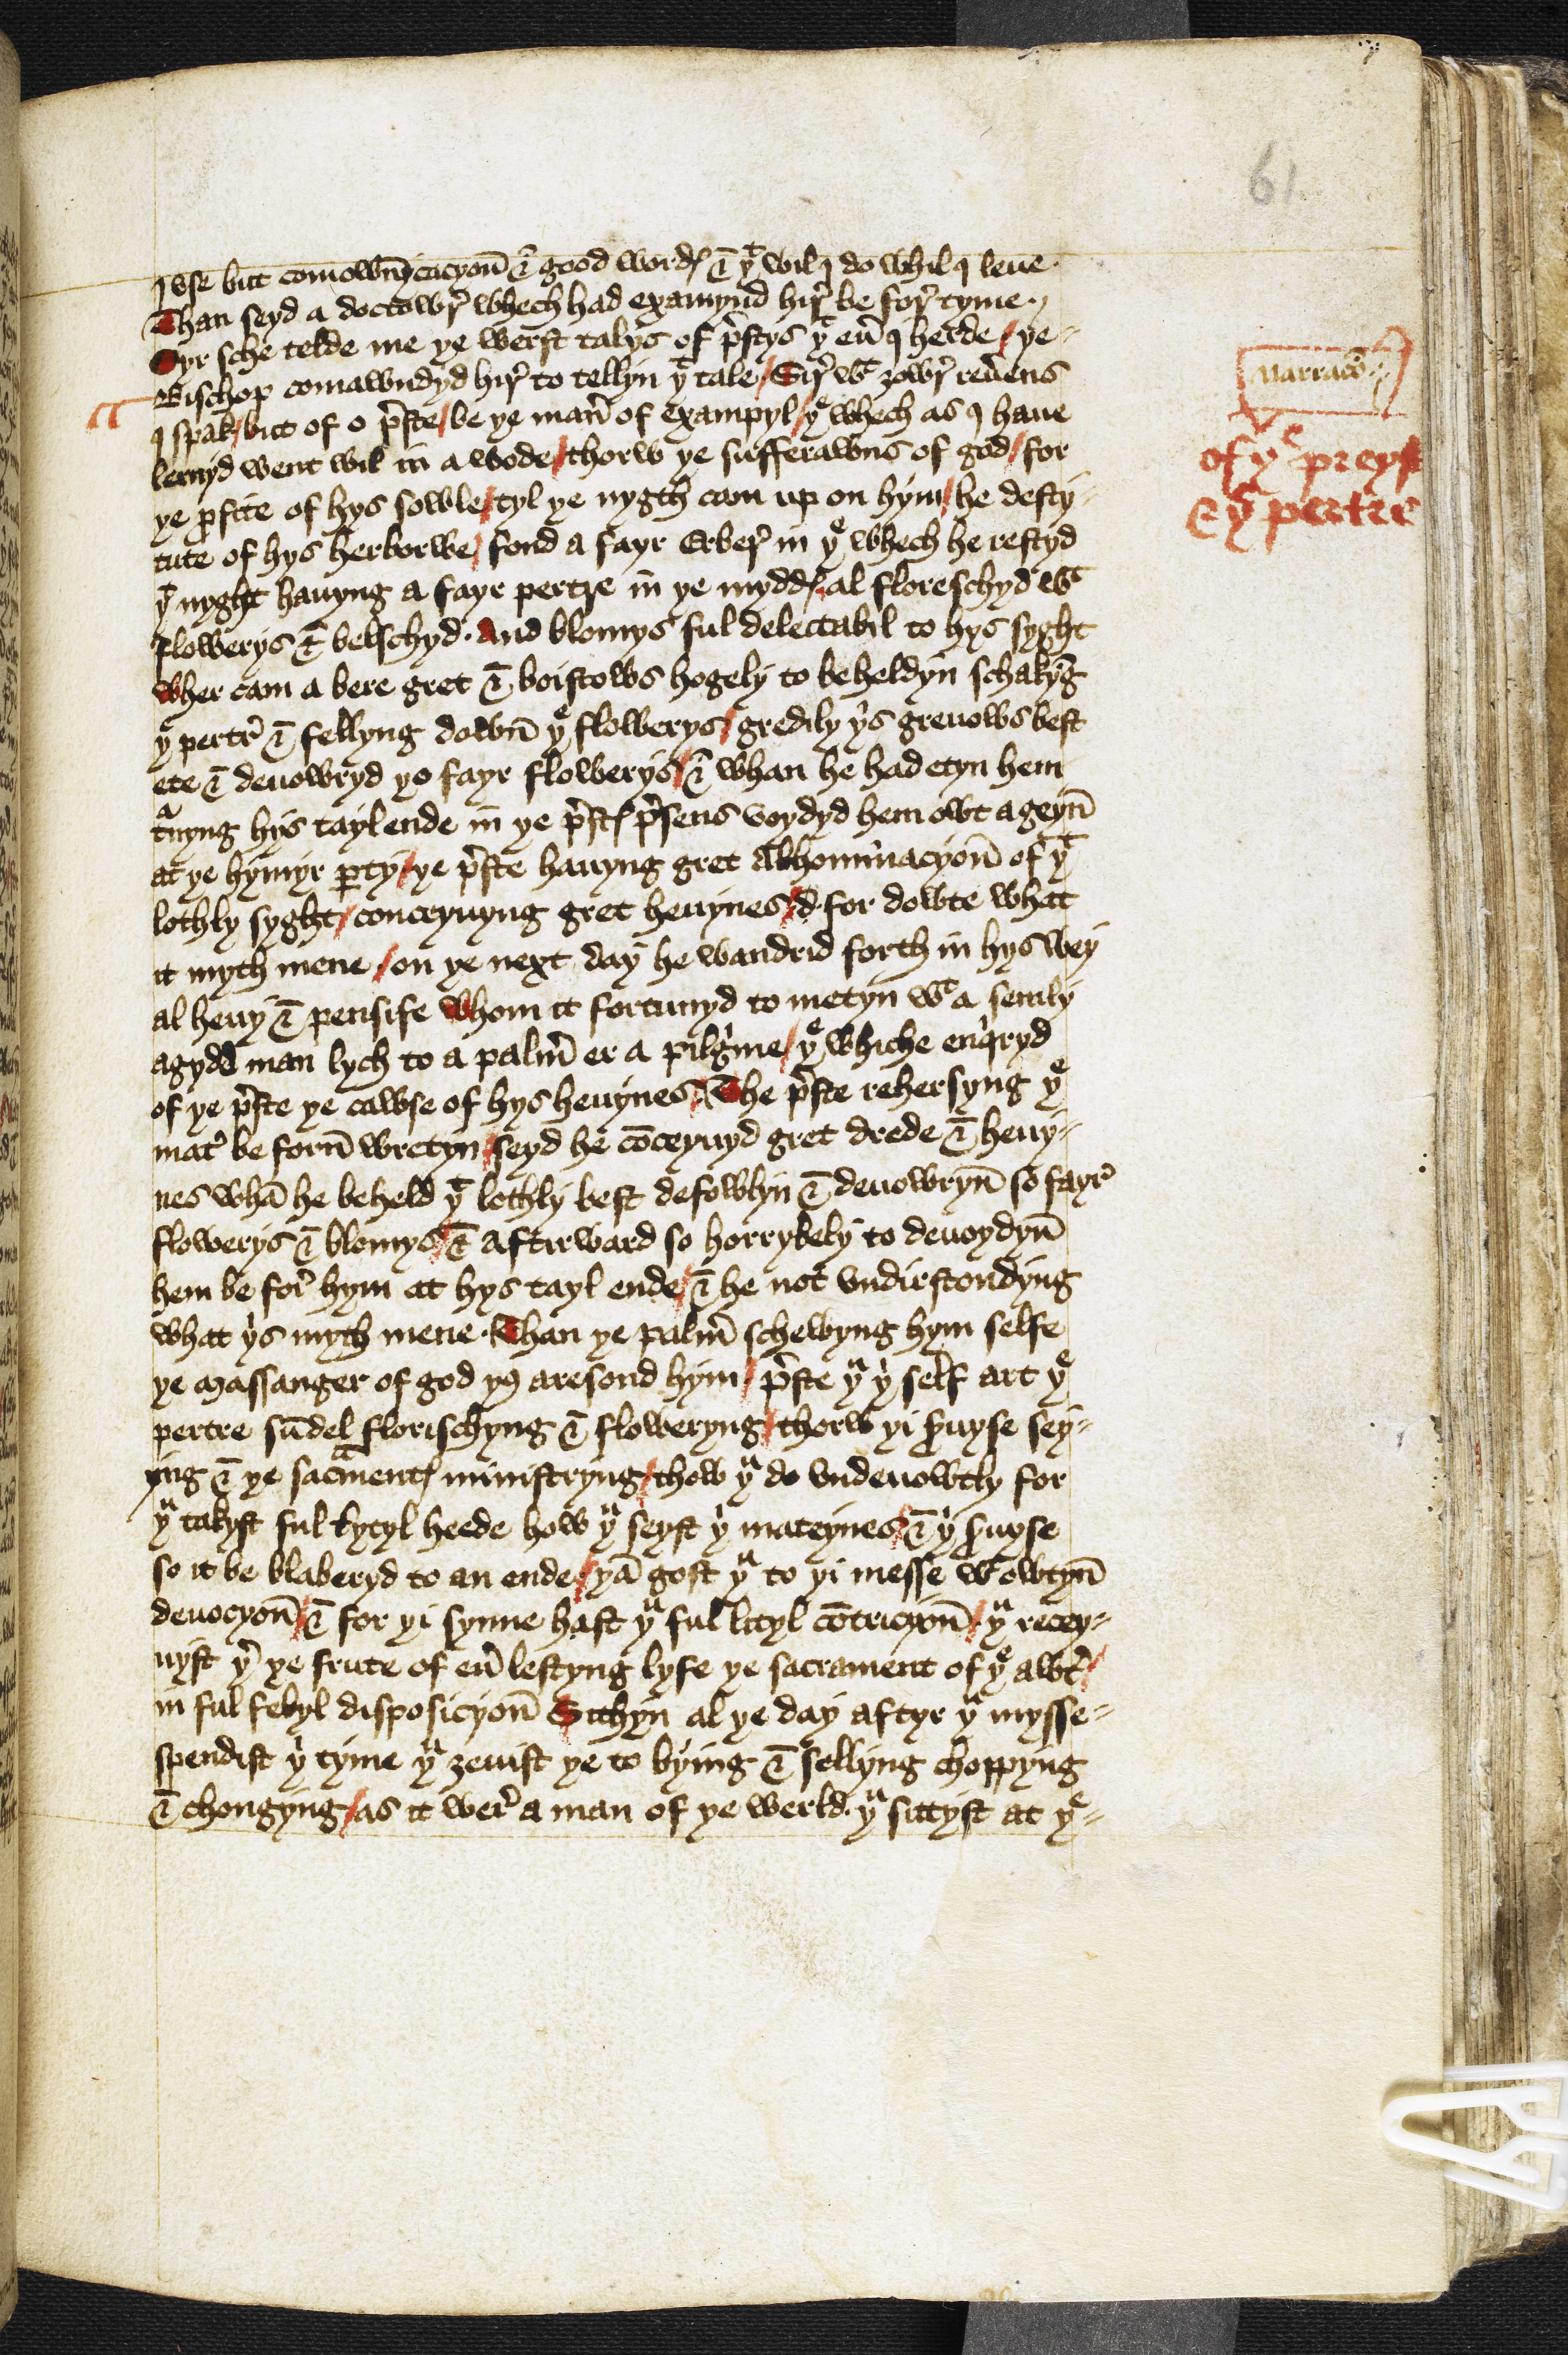 61
I vse but comownycacyon & good wordys & yt wil I do whil I leue.
Than seyd a doctowr whech had examynd hir be for tyme.
Syr sche telde me ye werst talys of prestys yt euer I herde / ye
Bischop comawndyd hir to tellyn yt tale / Sir wt ȝowr reuerens
I spak / but of o preste / be ye maner of exampyl / ye whech as I haue
lernyd went wil in a wode / thorw ye sufferawns of god / for
ye profite of hys sowle / tyl ye nygth cam up on hym / he desty-
tute of hys herborwe / fond a fayr Erber in ye whech he restyd
yt nyght hauyng a fayr pertre in ye myddys al floreschyd wt
flowerys & belschyd. And blomys ful delectabil to hys syght
wher cam a bere gret & boistows hogely to beheldyn schakyng
ye pertre & fellyng down ye flowerys / gredily yis greuows best
ete & deuowryd yo fayr flowerys / & whan he had etyn hem
turnyng hys tayl ende in ye prestys presens voydyd hem owt ageyn
at ye hymyr party / ye preste hauyng gret abhominacyon of yt
lothly syght / conceyuyng gret heuynes for dowte what
it myth mene / on ye next day he wandrid forth in hys wey
al heuy & pensife whom it fortunyd to metyn wt a semly
agydd man lych to a palmer er a pilgrime / ye whiche enqwryd
of ye preste ye cawse of hys heuynes. The preste rehersyng ye
mater be forn wretyn seyd he conceyuyd gret drede & heuy-
nes whan he beheld yt lothly best defowlyn & deuowryn so fayr
flowerys & blomys / & aftirward so horrybely to deuoydyn
hem be for hym at hys tayl ende / & he not vndirstondyng
what yis myth mene. Than ye palmer schewyng hym selfe
ye massanger of god yus aresond hym / preste yu yi self art ye
pertre sumdel florischyng & floweryng / thorw yi seruyse sey-
yng & ye sacramentys ministryng / thow yu do vndeuowtly for
yu takyst ful lytyl heede how yu seyst yi mateynes & yi seruyse
so it be blaberyd to an ende / yan gost yu to yi messe wtowtyn
deuocyon / & for yi synne hast yu ful lityl contricyon / yu recey-
uyst yer ye frute of euer lestyng lyfe ye sacrament of ye awter /
in ful febyl disposicyon Sithyn al ye day aftyr yu mysse-
spendist yi tyme yu ȝeuist ye to bying & sellyng choppyng
& chongyng / as it wer a man of ye werld. yu sittyst at ye
Narracio
of ye preyst
& ye pertre